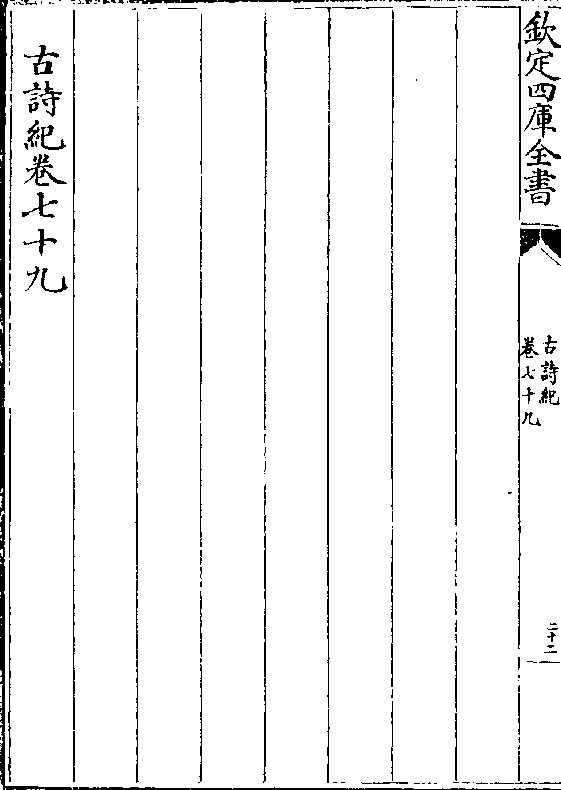 欽定四庫全書
古詩紀
卷七十九
二十二
古詩紀卷七十九